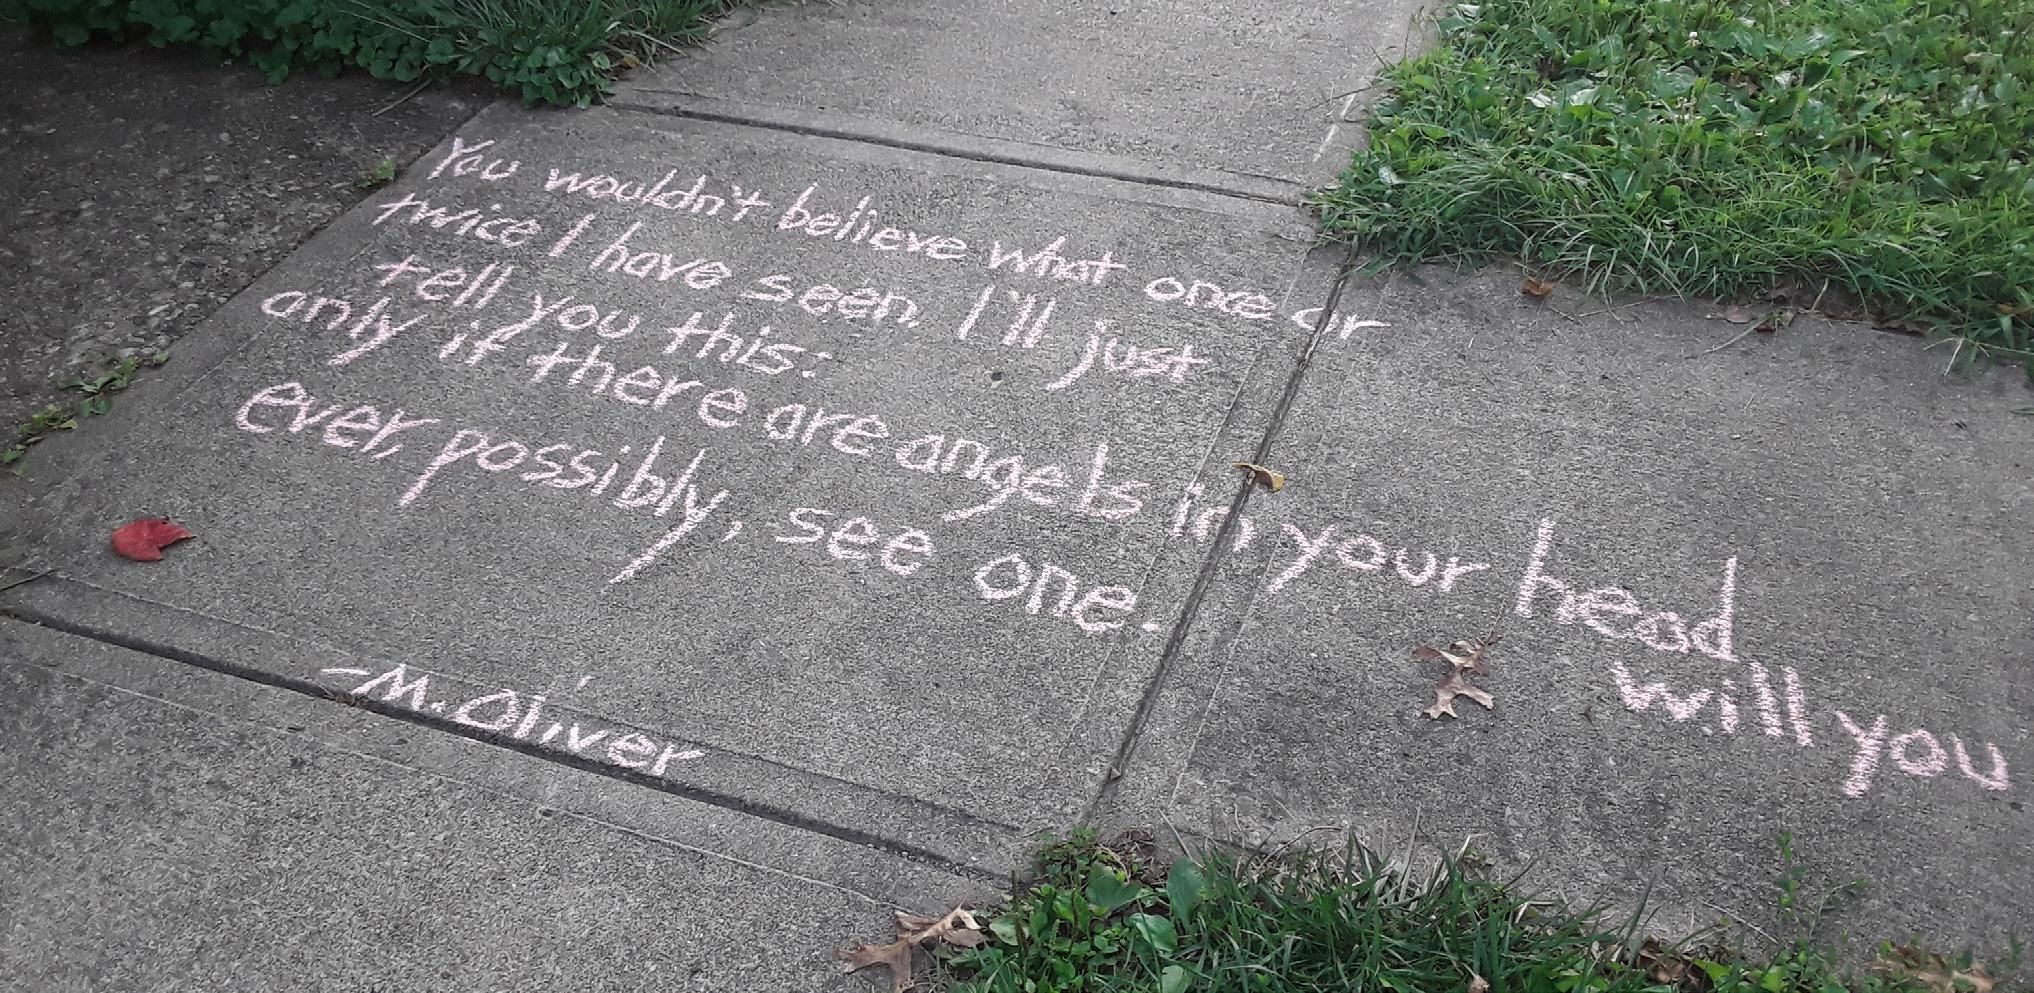 You wouldn't believe what once or
twice I have seen. I'll just
tell you this:
only if there are angels in your head will you
ever, possibly, see one.
-M. Oliver